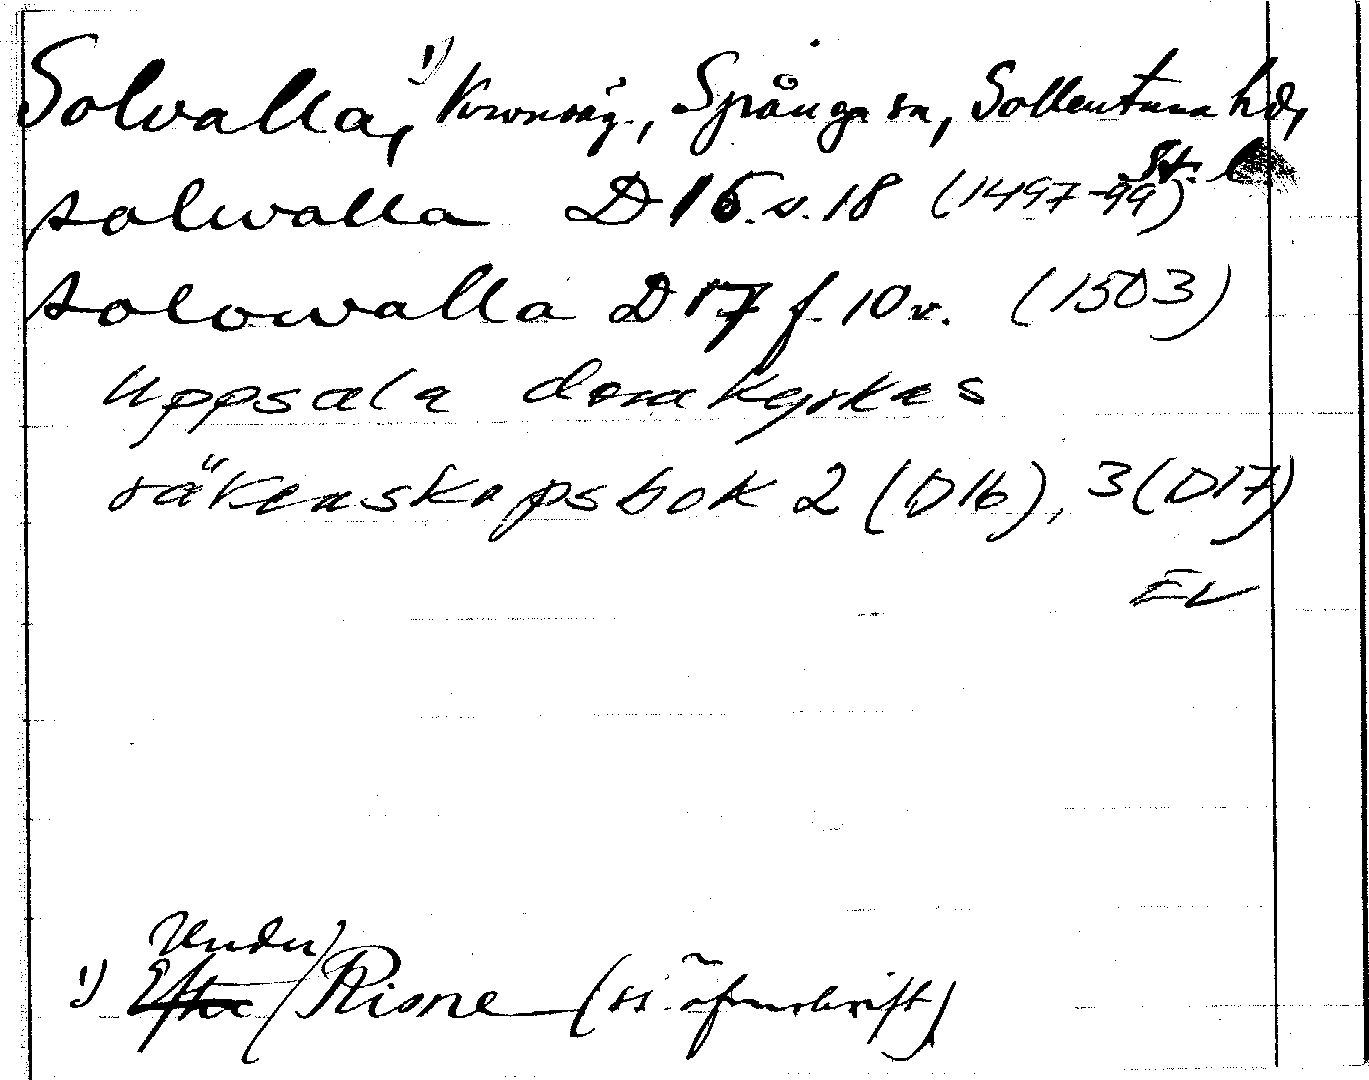 Solvalla, 1) Kronoäg., Spånga sn, Sollentuna hd,
St. l
solwalla D 16 s. 18 (1497-99)
solowalla D 17 f. 10 v. (1503)
Uppsala domkyrkas
räkenskapsbok 2 (D16), 3 (D17)
EV
Under
1) Efter / Risne (ss. öfverskrift)